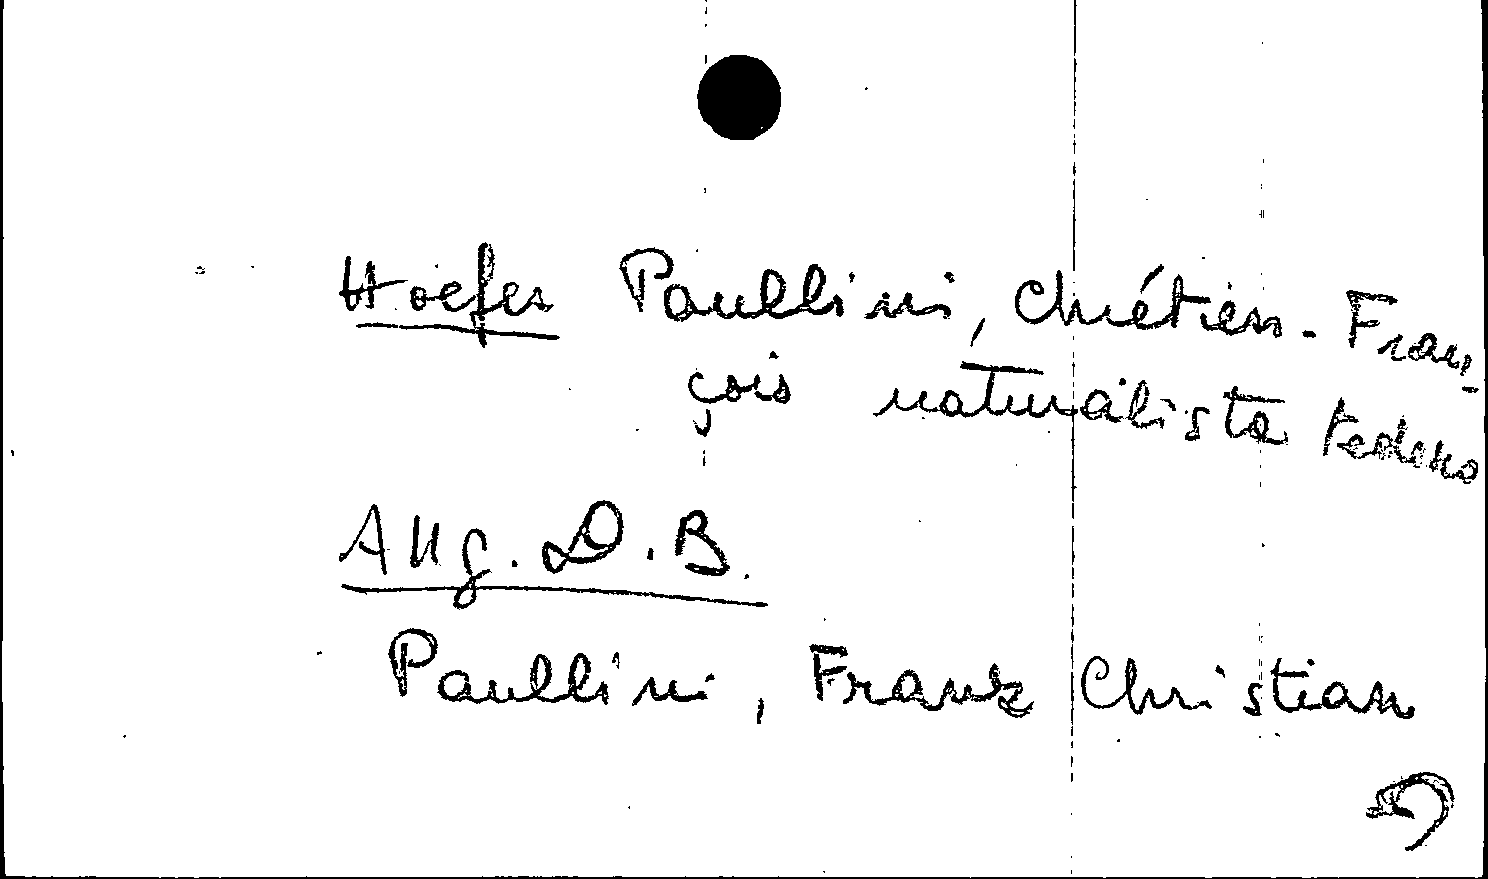 Hoefer Paullini, Chrétien-Fran-
çois naturalista tedesco
Allg. D. B.
Paullini, Franz Christian